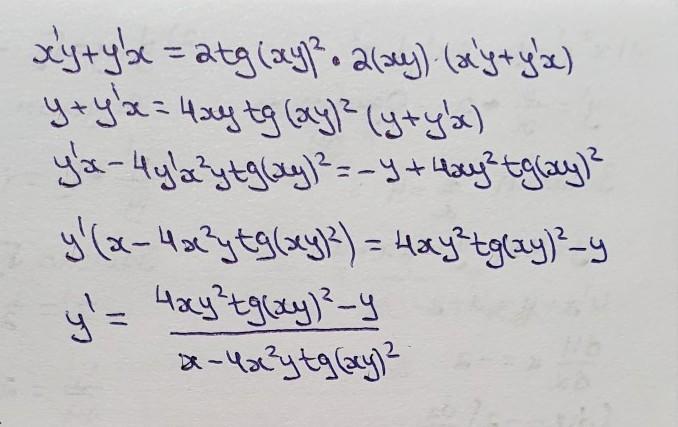 x'y+y'x = 2tg(xy)² · 2(xy) · (x'y+y'x)
y+y'x = 4xy tg(xy)² (y+y'x)
y'x - 4y'x²y tg(xy)² = -y + 4xy² tg(xy)²
y'(x - 4x²y tg(xy)²) = 4xy² tg(xy)² - y
y' = \frac{4xy² tg(xy)² - y}{x - 4x²y tg(xy)²}